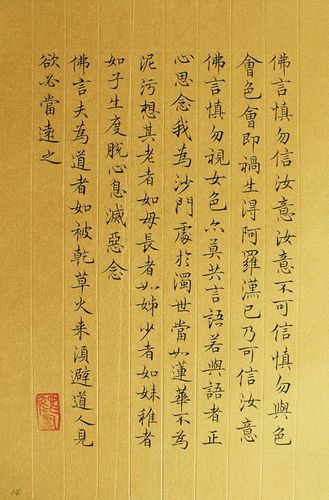 佛言慎勿信汝意汝意不可信慎勿與色
會色會即禍生得阿羅漢已乃可信汝意
佛言慎勿視女色亦莫共言語若與語者正
心思念我為沙門處於濁世當如蓮華不為
泥污想其老者如母長者如姊少者如妹稚者
如子生度脫心息滅惡念
佛言夫為道者如被乾草火來須避道人見
欲必當遠之
14